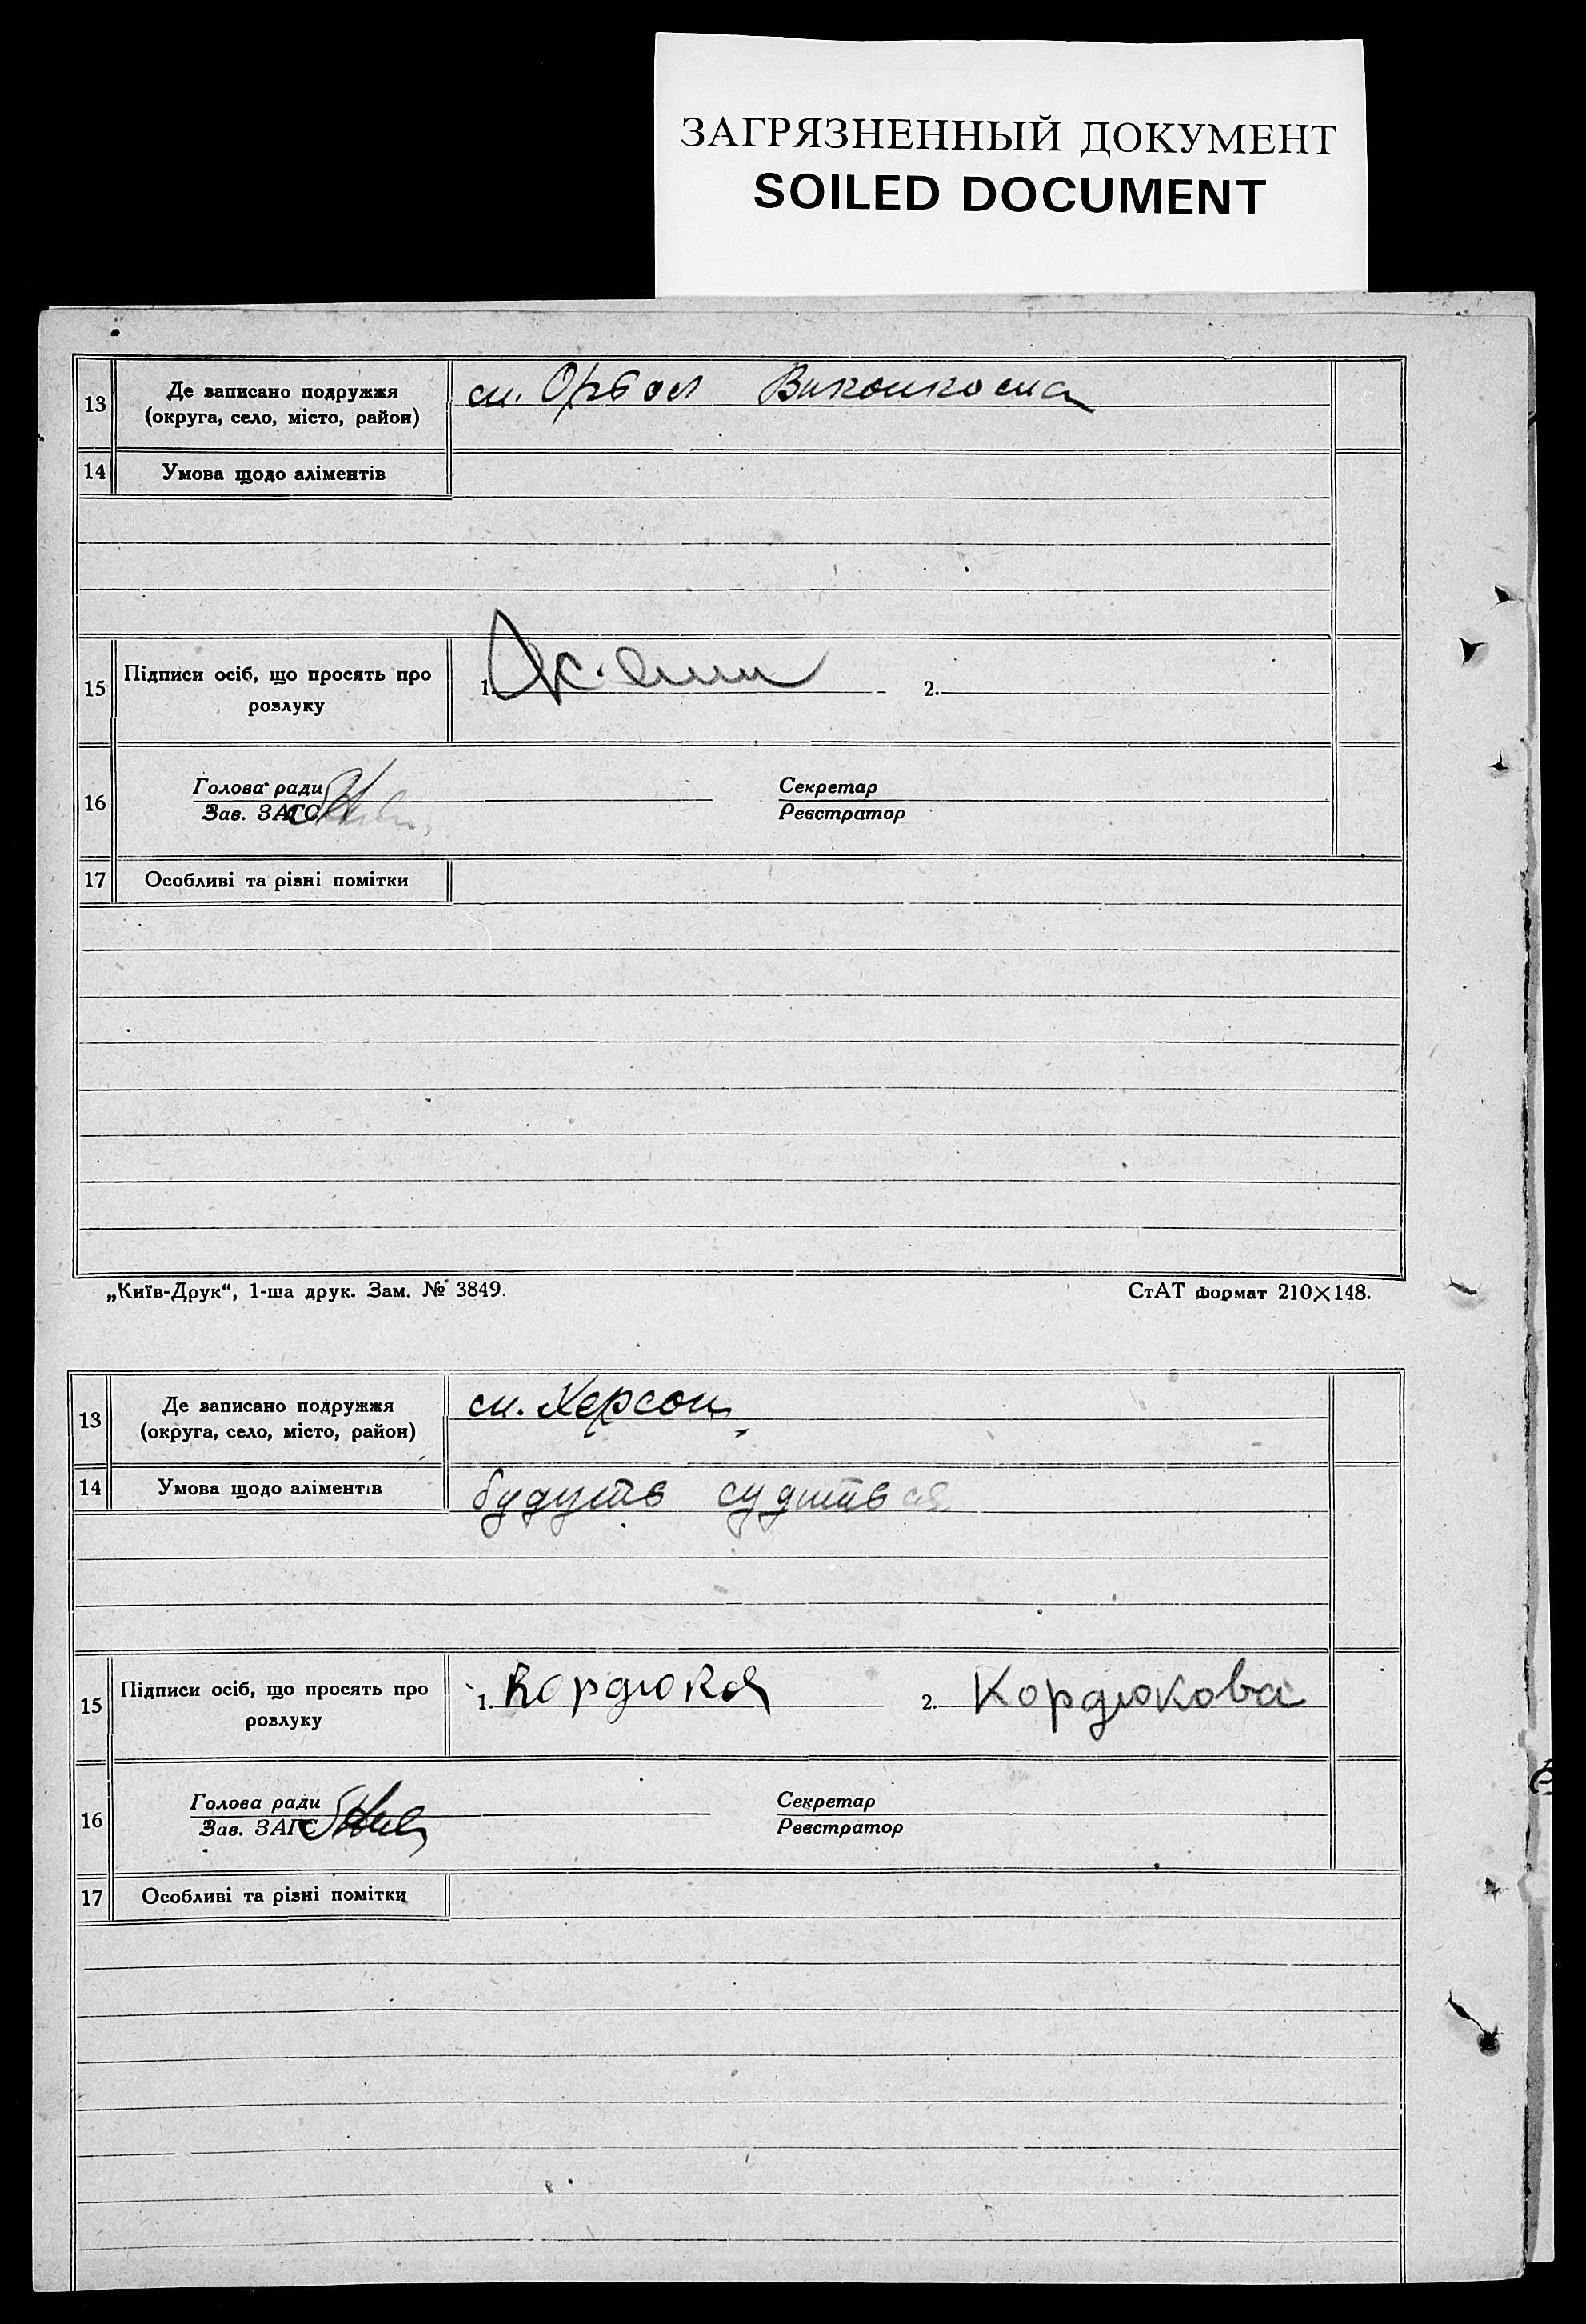 ЗАГРЯЗНЕННЫЙ ДОКУМЕНТ
SOILED DOCUMENT
13 Де записано подружжя
(округа, село, місто, район)
14 Умова щодо аліментів
15 Підписи осіб, що просять про
розлуку
1. 2.
16 Голова ради Секретар
Зав. ЗАГС Реєстратор
17 Особливі та різні помітки
„Київ-Друк“, 1-ша друк. Зам. № 3849. СтАТ формат 210×148.
13 Де записано подружжя
(округа, село, місто, район)
м. Херсон
14 Умова щодо аліментів будуть судиться
15 Підписи осіб, що просять про
розлуку
1. Кордюков 2. Кордюкова
16 Голова ради Секретар
Зав. ЗАГС Реєстратор
17 Особливі та різні помітки